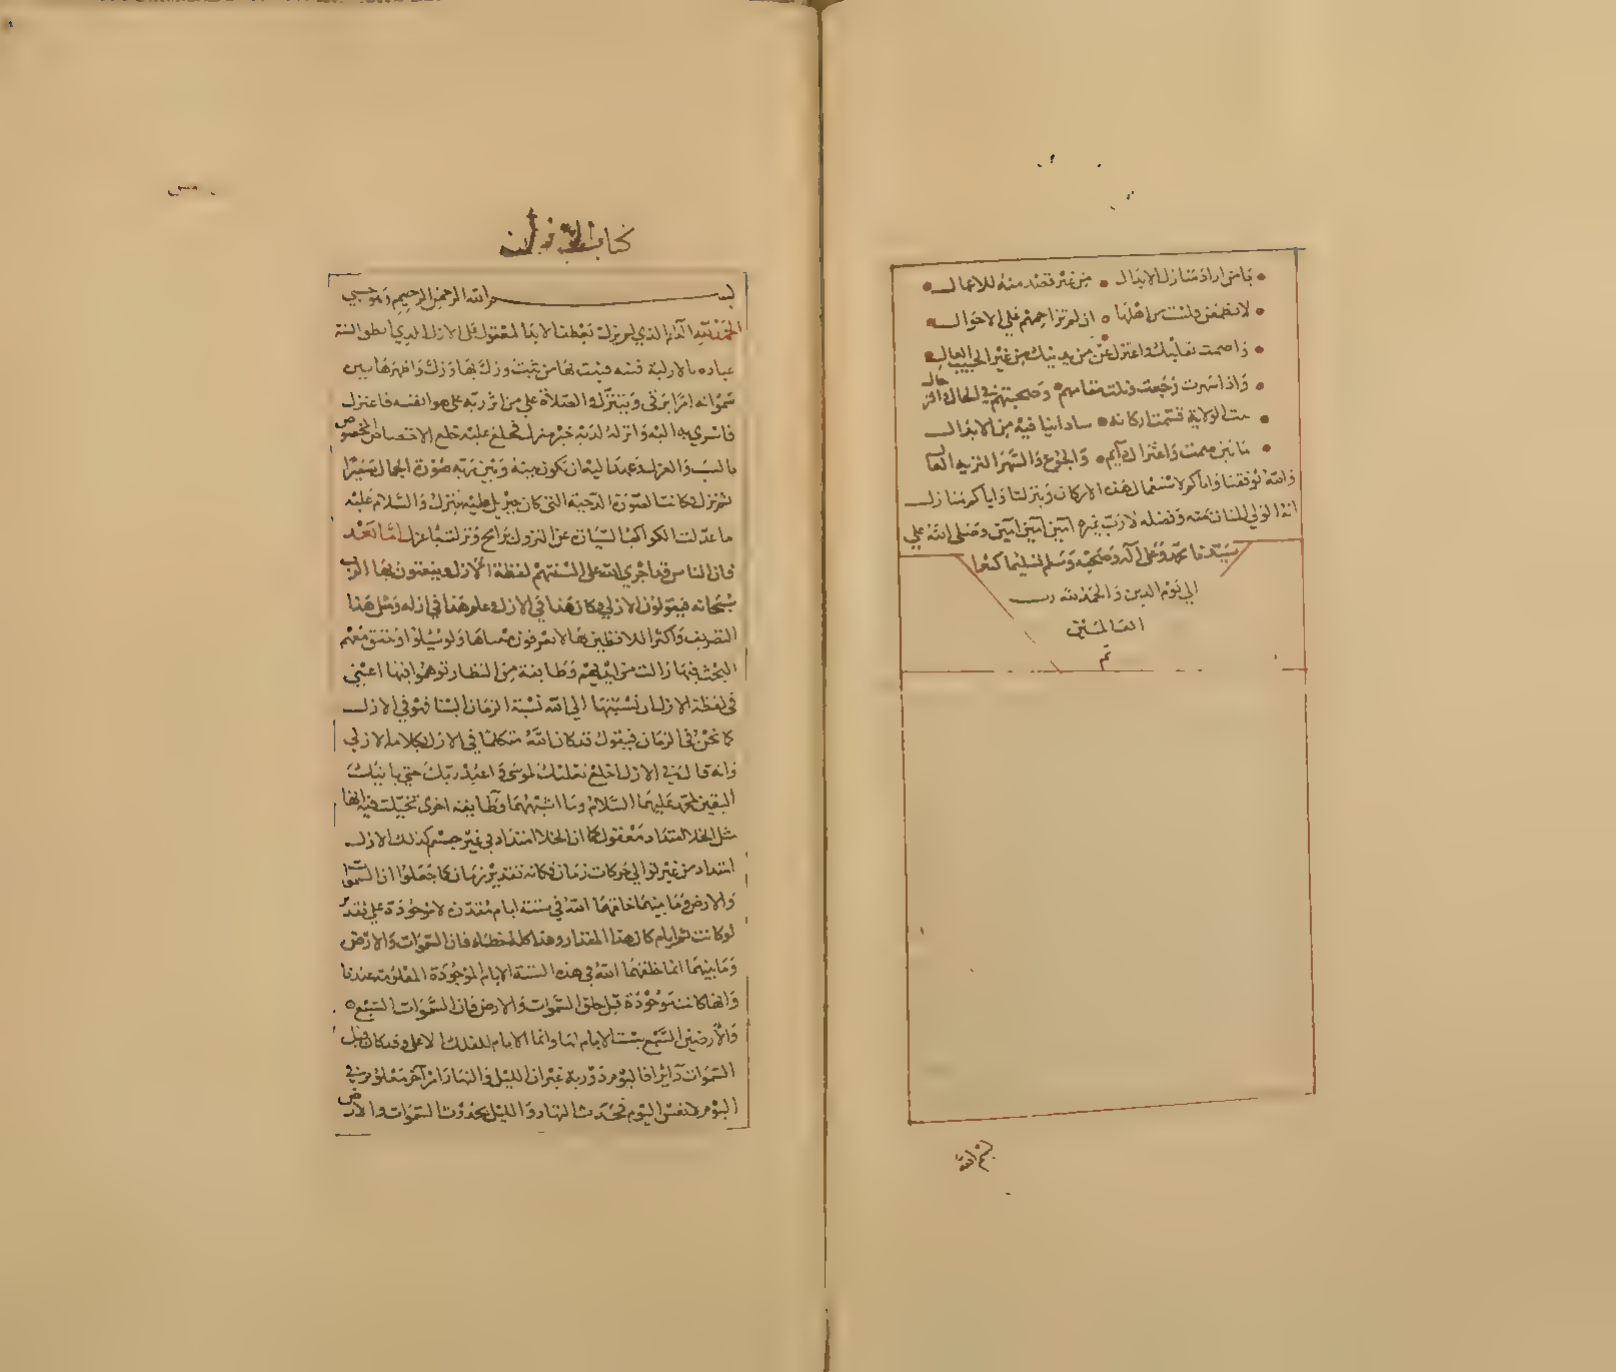 يا من اراد منازل الابدال • من غير قصد منه للاعمال
لا تطمعن فلست من اهلها • ان لم تزاحمهم على الاحوال
واصمت بقلبك واعتزل عن من يدنيك من غير الحبيب الوالي
واذا سهرت وجعت فنلت مقامهم • وصحبتهم في الحال
بيت الولاية قسمت اركانه • ساداتنا فيه من الابدال
ما بين صمت واعتزال دايم • والجوع والسهر النزيه العالي
والله يوفقنا واياكم لاستعمال هذه الاركان وينزلنا واياكم منازل
انه الولي المنان بمنه وفضله لا رب غيره امين امين امين وصلى الله على
سيدنا محمد وعلى آله وصحبه وسلم تسليما كثيرا
الى يوم الدين والحمد لله رب
العالمين
تم
بسم الله
كتاب الازل
بسم الله الرحمن الرحيم
الحمد لله الدايم الذي لم يزل
عباده
سمواته على من اثر ربه على هوا نفسه فاعتزل
فاسري به اليه وانزله لديه خير منزل فخلع عليه خلع الاختصاص
صورة الجمال
ثم نزل فكانت الصورة الدحية التي كان جبريل عليه ينزل والسلام عليه
ما عدلت الكواكب السيارة عن النزول اما بعد
فان الناس قد اجرى الله على السنتهم لفظة الازل وينعتون بها الرب
سبحانه فيقولون الازلي وكان هذا في الازل وعلم هذا في ازله ومثل هذا
التصريف واكثر اللافظين بها لا يعرفون معناها ولو سيلوا وحقق معهم
البحث فيها زالت من ايديهم وطايفة من النظار توهموا فيها اعني
في لفظة الازل ان نسبتها الى الله نسبة الزمان الينا فهو في الازل
كما نحن في الزمان فيقول قد كان الله متكلما في الازل بكلامه الازلي
وانه قال في الازل اخلع نعليك لموسى واعبد ربك حتى ياتيك
اليقين لمحمد عليهما السلام وما اشبههما وطايفة اخرى تخيلت فيه انها
مثل الخلا امتداد معقول كما ان الخلا امتداد في غير جسم كذلك الازل
امتداد من غير توالي حركات زمان فكانه تقدير زمان كما جعلوا ان السموات
والارض وما بينهما خلقهما الله في ستة ايام مقدرة لا موجودة على تقدير
لو كانت ثم ايام كان هذا المقدار وهذا كله خطاء فان السموات والارض
وما بينهما انما خلقهما الله في هذه الستة الايام الموجودة المعلومة عندنا
وانها كانت موجودة قبل خلق السموات والارض فان السموات السبع
والارضين السبع ليست الايام لها وانما الايام للفلك الاعلى وقد كان قبل
السموات دايرا فاليوم دورته غير ان الليل والنهار امر آخر معلوم في
اليوم لا نفس اليوم فحدث النهار والليل بحدوث السموات والارض